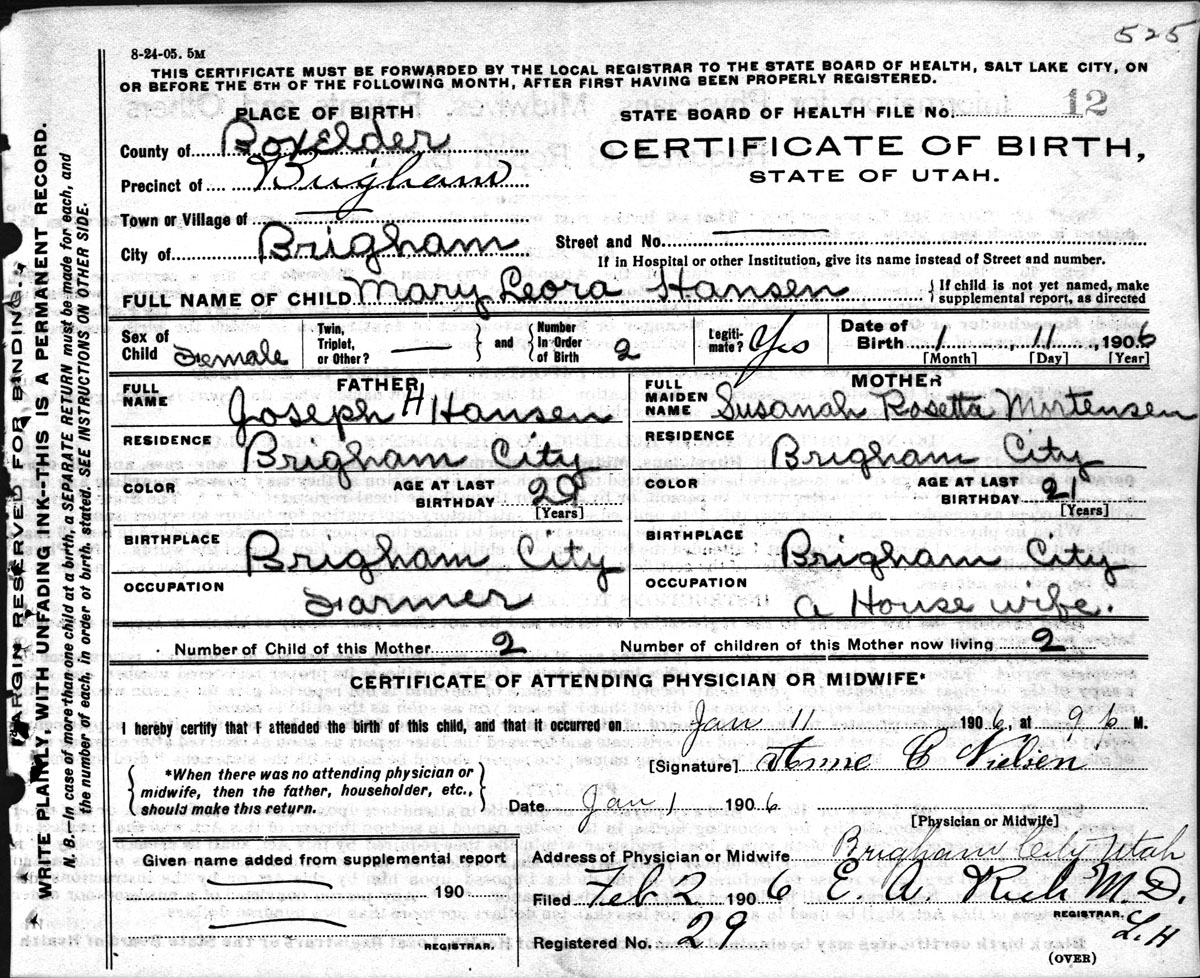 525
8-24-05. 5M
THIS CERTIFICATE MUST BE FORWARDED BY THE LOCAL REGISTRAR TO THE STATE BOARD OF HEALTH, SALT LAKE CITY, ON
OR BEFORE THE 5TH OF THE FOLLOWING MONTH, AFTER FIRST HAVING BEEN PROPERLY REGISTERED.
PLACE OF BIRTH
STATE BOARD OF HEALTH FILE No. 12
County of BoxElder
CERTIFICATE OF BIRTH,
STATE OF UTAH.
Precinct of Brigham
Town or Village of —
City of Brigham
Street and No. —
If in Hospital or other Institution, give its name instead of Street and number.
FULL NAME OF CHILD Mary Leora Hansen
{ If child is not yet named, make
supplemental report, as directed
Sex of
Child Female
Twin,
Triplet,
or Other? —
} and { Number
In Order
of Birth 2
Legiti-
mate? Yes
Date of
Birth 1, 11, 1906
[Month] [Day] [Year]
FATHER
FULL
NAME Joseph H Hansen
RESIDENCE
Brigham City
COLOR
AGE AT LAST
BIRTHDAY 29
[Years]
BIRTHPLACE
Brigham City
OCCUPATION
Farmer
MOTHER
FULL
MAIDEN
NAME Susanah Rosetta Mortensen
RESIDENCE
Brigham City
COLOR
AGE AT LAST
BIRTHDAY 21
[Years]
BIRTHPLACE
Brigham City
OCCUPATION
A House wife.
Number of Child of this Mother 2
Number of children of this Mother now living 2
CERTIFICATE OF ATTENDING PHYSICIAN OR MIDWIFE*
I hereby certify that I attended the birth of this child, and that it occurred on Jan 11 1906, at 9 M.
{ *When there was no attending physician or
midwife, then the father, householder, etc.,
should make this return. }
[Signature] C Nielsen
Date Jan 1 1906
[Physician or Midwife]
Given name added from supplemental report
— 190
—
REGISTRAR.
Address of Physician or Midwife Brigham City Utah
Filed Feb 2 1906 E. A. Rich M.D.
REGISTRAR.
L.H
Registered No. 29
(OVER)
MARGIN RESERVED FOR BINDING.
WRITE PLAINLY, WITH UNFADING INK—THIS IS A PERMANENT RECORD.
N. B.—In case of more than one child at a birth, a SEPARATE RETURN must be made for each, and
the number of each, in order of birth, stated. SEE INSTRUCTIONS ON OTHER SIDE.